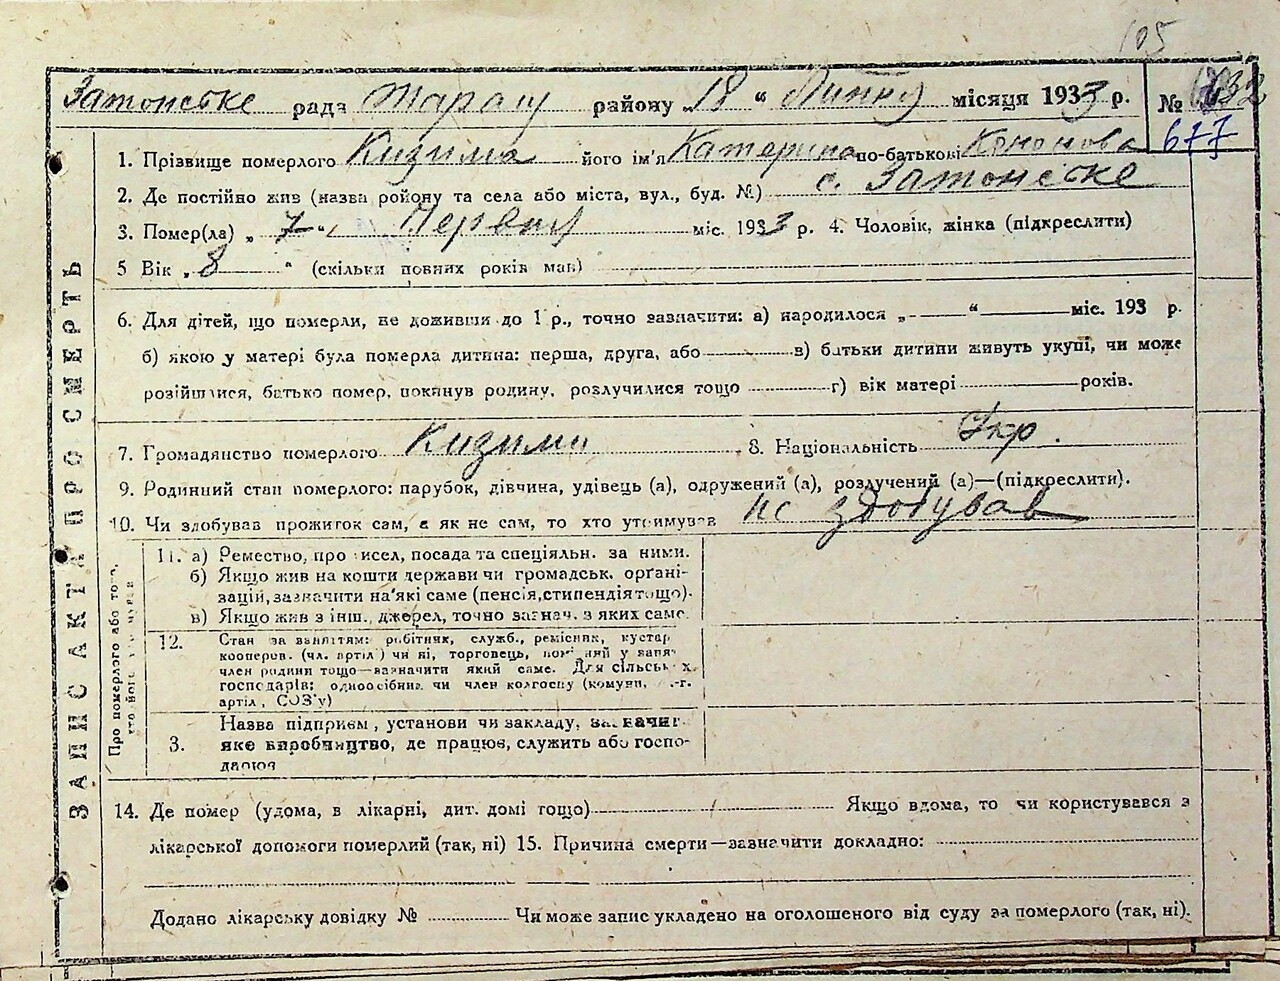 105
Затонське рада району „18“ Липня місяця 1933 р. №
677
1. Прізвище померлого Кизима його ім'я Катерина по-батькові Кононова
2. Де постійно жив (назва ройону та села або міста, вул., буд. №) с. Затонське
3. Помер(ла) „7“ Червня міс. 1933 р. 4. Чоловік, жінка (підкреслити)
5 Вік „8“ (скільки повних років мав)
6. Для дітей, що померли, не доживши до 1 р., точно зазначити: а) народилося „ “ міс. 193 р.
б) якою у матері була померла дитина: перша, друга, або в) батьки дитини живуть укупі, чи може
розійшлися, батько помер, покинув родину, розлучилися тощо г) вік матері років.
7. Громадянство померлого Кизима 8. Національність Укр.
9. Родинний стан померлого: парубок, дівчина, удівець (а), одружений (а), розлучений (а)—(підкреслити).
10. Чи здобував прожиток сам, а як не сам, то хто утримував не здобував
ЗАПИС АКТА ПРО СМЕРТЬ
Про померлого або того,
11. а) Ремество, промисел, посада та спеціяльн. за ними.
б) Якщо жив на кошти держави чи громадськ. орґані-
зацій, зазначити на які саме (пенсія, стипендія тощо).
в) Якщо жив з інш. джерел, точно зазнач. з яких саме.
12. Стан за заняттям: робітник, служб., ремісник, кустар
кооперов. (чл. артіл.) чи ні, торговець, у заня
член родини тощо—зазначити який саме. Для сільськ х
господарів: одноосібник чи член колгоспу (комуни,
артіл, СОЗ'у)
Назва підприєм, установи чи закладу, зазначит
3. яке виробництво, де працює, служить або госпо-
дарює
14. Де помер (удома, в лікарні, дит. домі тощо) Якщо вдома, то чи користувався з
лікарської допомоги померлий (так, ні) 15. Причина смерти—зазначити докладно:
Додано лікарську довідку № Чи може запис укладено на оголошеного від суду за померлого (так, ні).